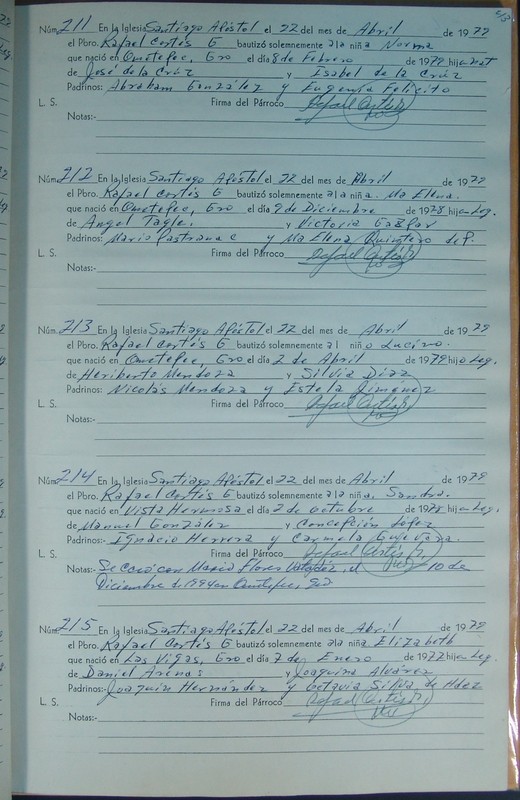 Núm. 211 En la Iglesia Santiago Apóstol el 22 del mes de Abril de 1979
el Pbro. Rafael Cortés G bautizó solemnemente a la niña Norma
que nació en Ometepec, Gro el día 8 de Febrero de 1979 hija nat
de José de la Cruz y Isabel de la Cruz
Padrinos: Abraham González y Eugenia Felícito
L. S. Firma del Párroco Rafael Cortés G
Notas:
Núm. 212 En la Iglesia Santiago Apóstol el 22 del mes de Abril de 1979
el Pbro. Rafael Cortés G bautizó solemnemente a la niña. Ma Elena.
que nació en Ometepec, Gro el día 9 de Diciembre de 1978 hija Leg.
de Angel Tagle. y Victoria Gaspar
Padrinos: Mario Pastrana c y Ma Elena Quintero de P.
L. S. Firma del Párroco Rafael Cortés G
Notas:-
Núm. 213 En la Iglesia Santiago Apóstol el 22 del mes de Abril de 1979
el Pbro. Rafael Cortés G bautizó solemnemente a l niño Lucino.
que nació en Ometepec, Gro el día 2 de Abril de 1979 hijo Leg.
de Heriberto Mendoza y Silvia Díaz
Padrinos: Nicolás Mendoza y Estela Jiménez
L. S. Firma del Párroco Rafael Cortés G
Notas:-
Núm. 214 En la Iglesia Santiago Apóstol el 22 del mes de Abril de 1979
el Pbro. Rafael Cortés G bautizó solemnemente a la niña. Sandra.
que nació en Vista Hermosa el día 2 de octubre de 1978 hija Leg.
de Manuel González y Concepción López
Padrinos:- Ignacio Herrera y Carmela Guevara.
L. S. Firma del Párroco Rafael Cortés G
Notas: Se casó con Mario Flores el 10 de
Diciembre d 1994 en Ometepec, Gro.
Núm. 215 En la Iglesia Santiago Apóstol el 22 del mes de Abril de 1979
el Pbro. Rafael Cortés G bautizó solemnemente a la niña Elizabeth
que nació en Las Vigas, Gro el día 7 de Enero de 1977 hija Leg.
de Daniel Arenas y Joaquina Alvarez
Padrinos: Joaquín Hernández y Octavia Silva de Hdez
L. S. Firma del Párroco Rafael Cortés G
Notas:-